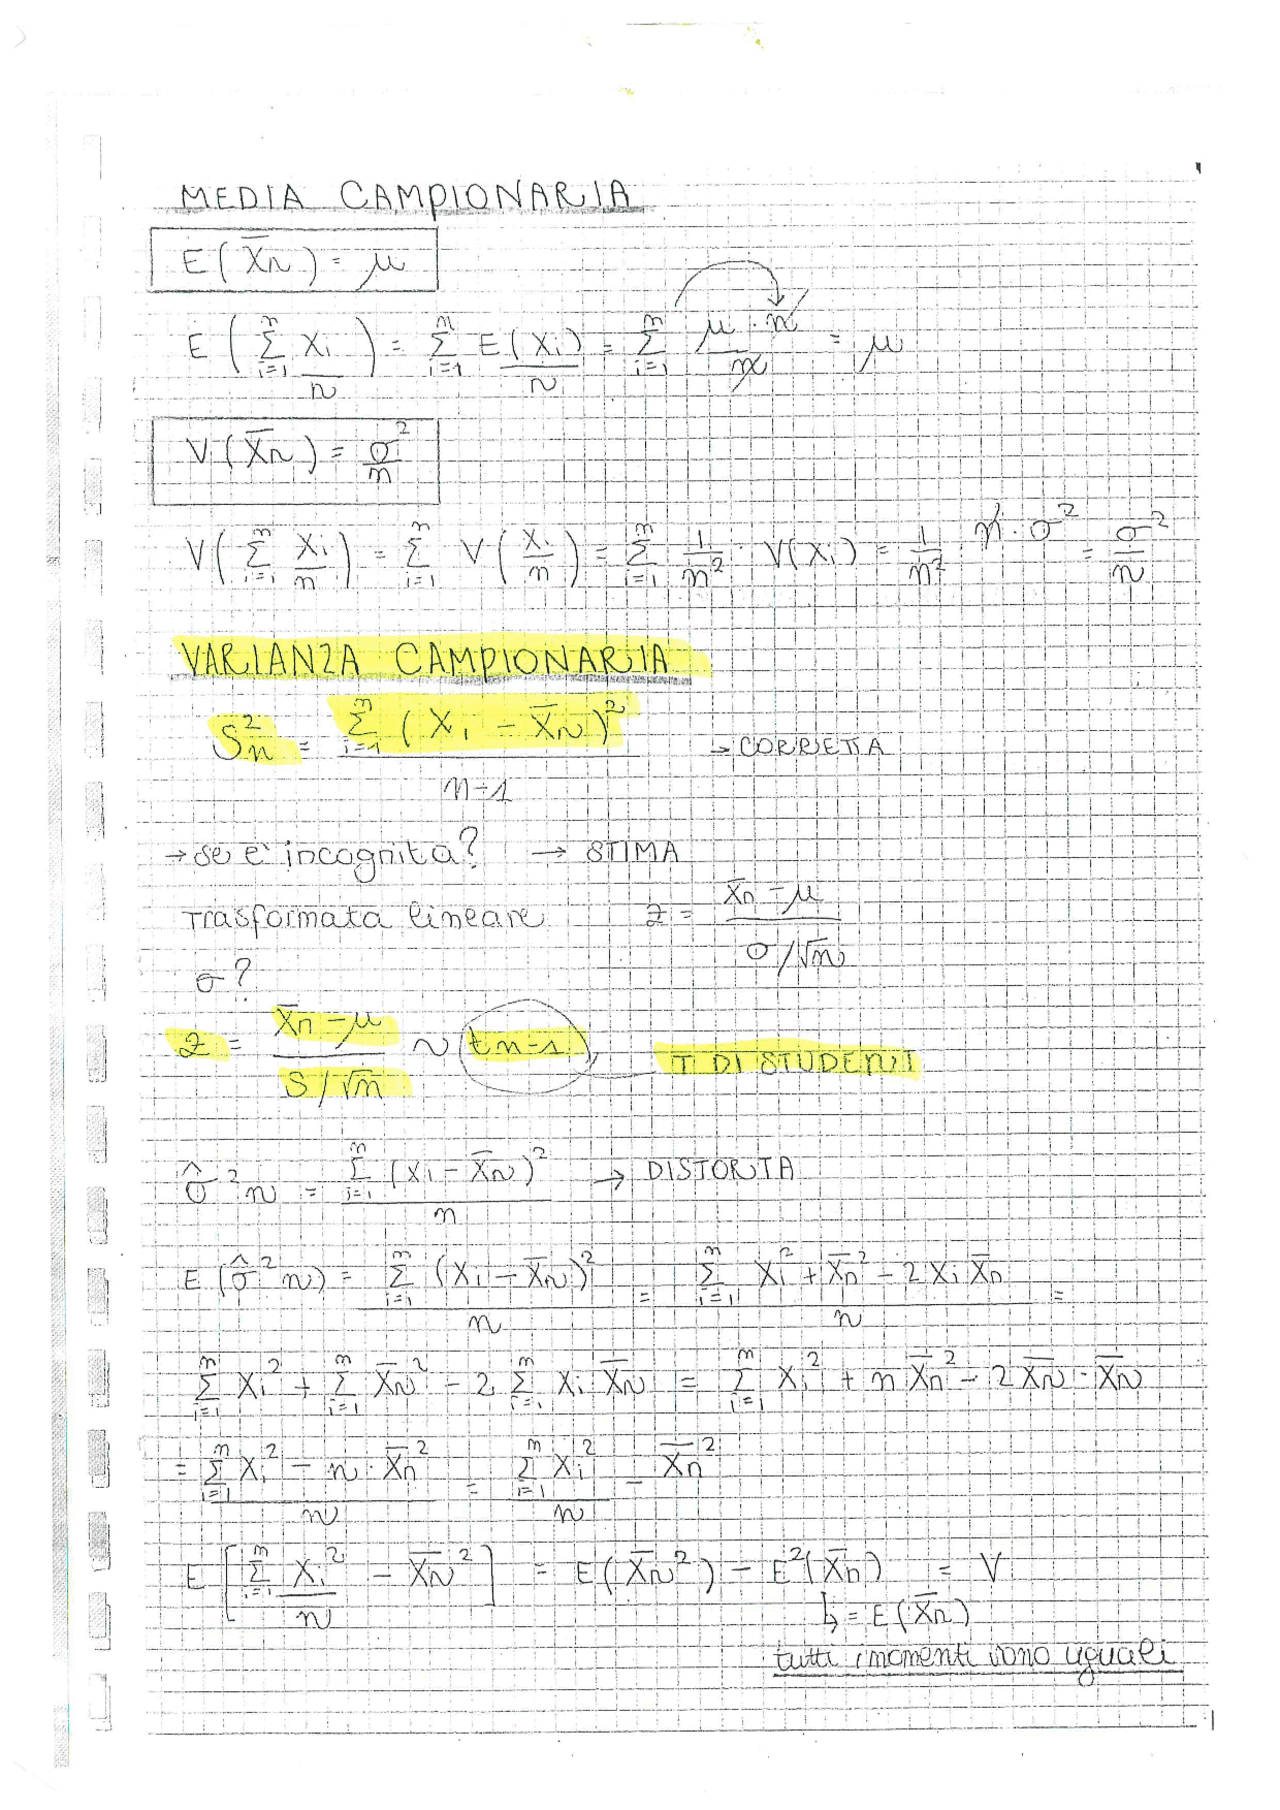 MEDIA CAMPIONARIA
E(X̄n) = μ
E(∑_{i=1}^{n} Xi/n) = ∑_{i=1}^{n} E(Xi)/n = ∑_{i=1}^{n} μ·n/n = μ
V(X̄n) = σ²/n
V(∑_{i=1}^{n} Xi/n) = ∑_{i=1}^{n} V(Xi/n) = ∑_{i=1}^{n} 1/n² · V(Xi) = 1/n² n·σ² = σ²/n
VARIANZA CAMPIONARIA
S²n = ∑_{i=1}^{n} (Xi - X̄n)² / n-1 → CORRETTA
→ se è incognita? → STIMA
Trasformata lineare z = X̄n - μ / σ/√n
σ?
z = X̄n - μ / S/√n ~ tn-1 T DI STUDENT
σ̂²n = ∑_{i=1}^{n} (Xi - X̄n)² / n → DISTORTA
E(σ̂²n) = ∑_{i=1}^{n} (Xi - X̄n)² / n = ∑_{i=1}^{n} Xi² + X̄n² - 2XiX̄n / n =
∑_{i=1}^{n} Xi² + ∑_{i=1}^{n} X̄n² - 2 ∑_{i=1}^{n} Xi X̄n = ∑_{i=1}^{n} Xi² + n X̄n² - 2X̄n · X̄n
= ∑_{i=1}^{n} Xi² - n·X̄n² / n = ∑_{i=1}^{n} Xi² / n - X̄n²
E[∑_{i=1}^{n} Xi²/n - X̄n²] = E(X̄n²) - E²(X̄n) = V
↳ = E(X̄n)
tutti i momenti sono uguali